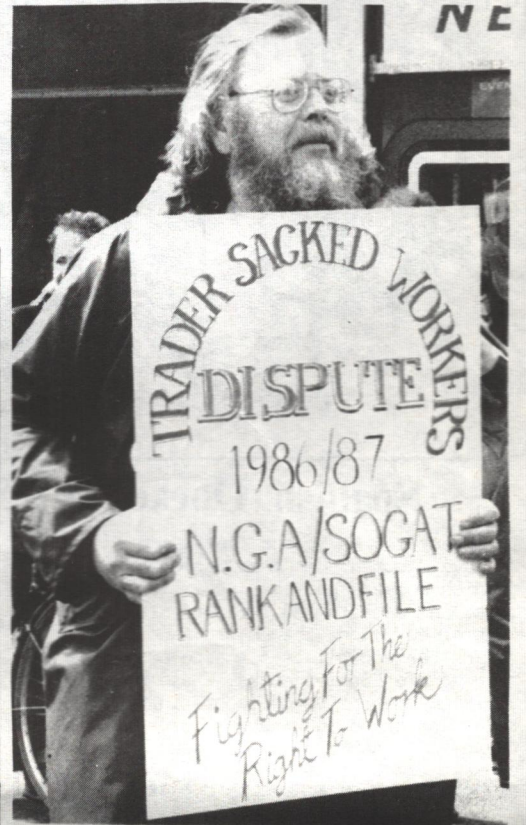 NE
TRADER SACKED WORKERS
DISPUTE
1986/87
N.G.A/SOGAT
RANKANDFILE
Fighting For The
Right To Work